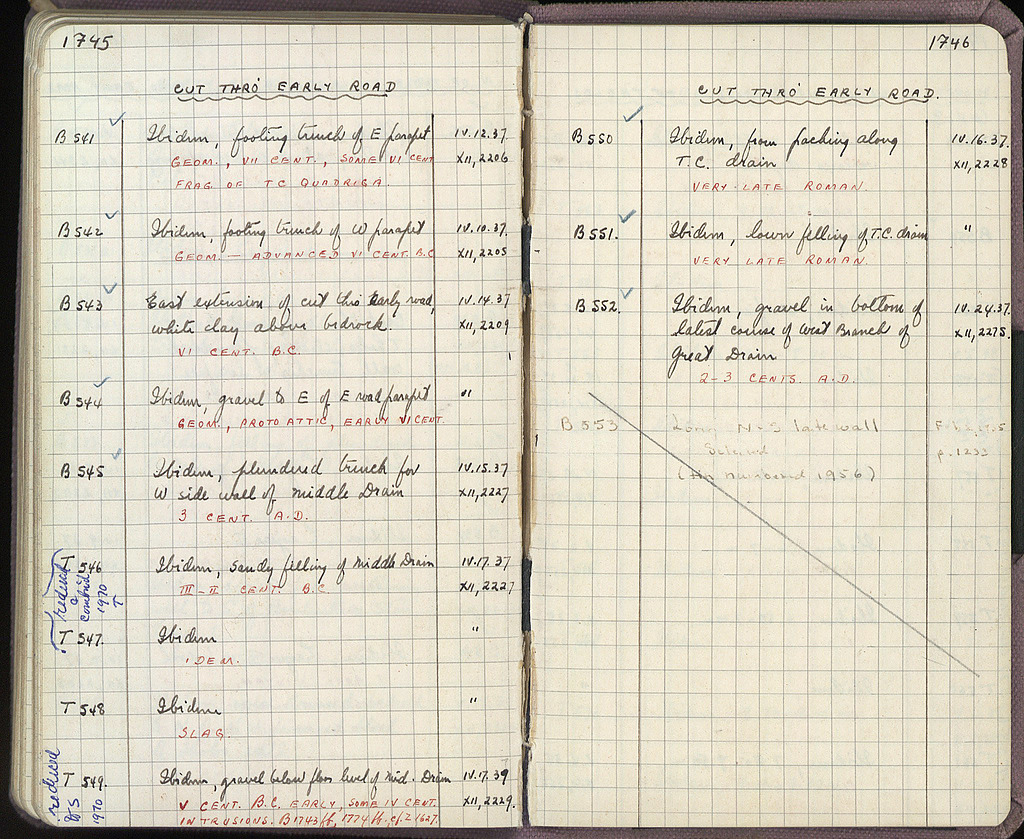 1745
CUT THRO' EARLY ROAD
B 541 Ibidem, footing trench of E parapet IV.12.37.
GEOM., VII CENT., SOME VI CENT XII, 2206
FRAG. OF TC QUADRIGA.
B 542 Ibidem, footing trench of W parapet IV.10.37.
GEOM. — ADVANCED VI CENT. B.C XII, 2205
B 543 East extension of cut thro Early road, IV.14.37
white clay above bedrock. XII, 2209
VI CENT. B.C.
B 544 Ibidem, gravel to E of E road parapet "
GEOM., PROTOATTIC, EARLY VI CENT.
B 545 Ibidem, plundered trench for IV.15.37
W side wall of Middle Drain XII, 2227
3 CENT. A.D.
T 546 Ibidem, sandy filling of Middle Drain IV.17.37
III-II CENT. B.C. XII, 2227
reduced
&
combined
1970
T
T 547. Ibidem "
IDEM.
T 548 Ibidem "
SLAG.
T 549. Ibidem, gravel below floor level of Mid. Drain IV.17.39
V CENT. B.C. EARLY, SOME IV CENT. XII, 2229.
INTRUSIONS. B1743ff, 1774ff. cf. Σ 1627.
reduced
1970
1746
CUT THRO' EARLY ROAD.
B 550 Ibidem, from packing along IV.16.37.
T.C. drain XII, 2228
VERY LATE ROMAN.
B 551. Ibidem, lower filling of T.C. drain "
VERY LATE ROMAN.
B 552. Ibidem, gravel in bottom of IV.24.37.
latest course of West Branch of XII, 2275.
Great Drain
2-3 CENTS. A.D.
B 553 N-S late wall
p. 1233
1956)